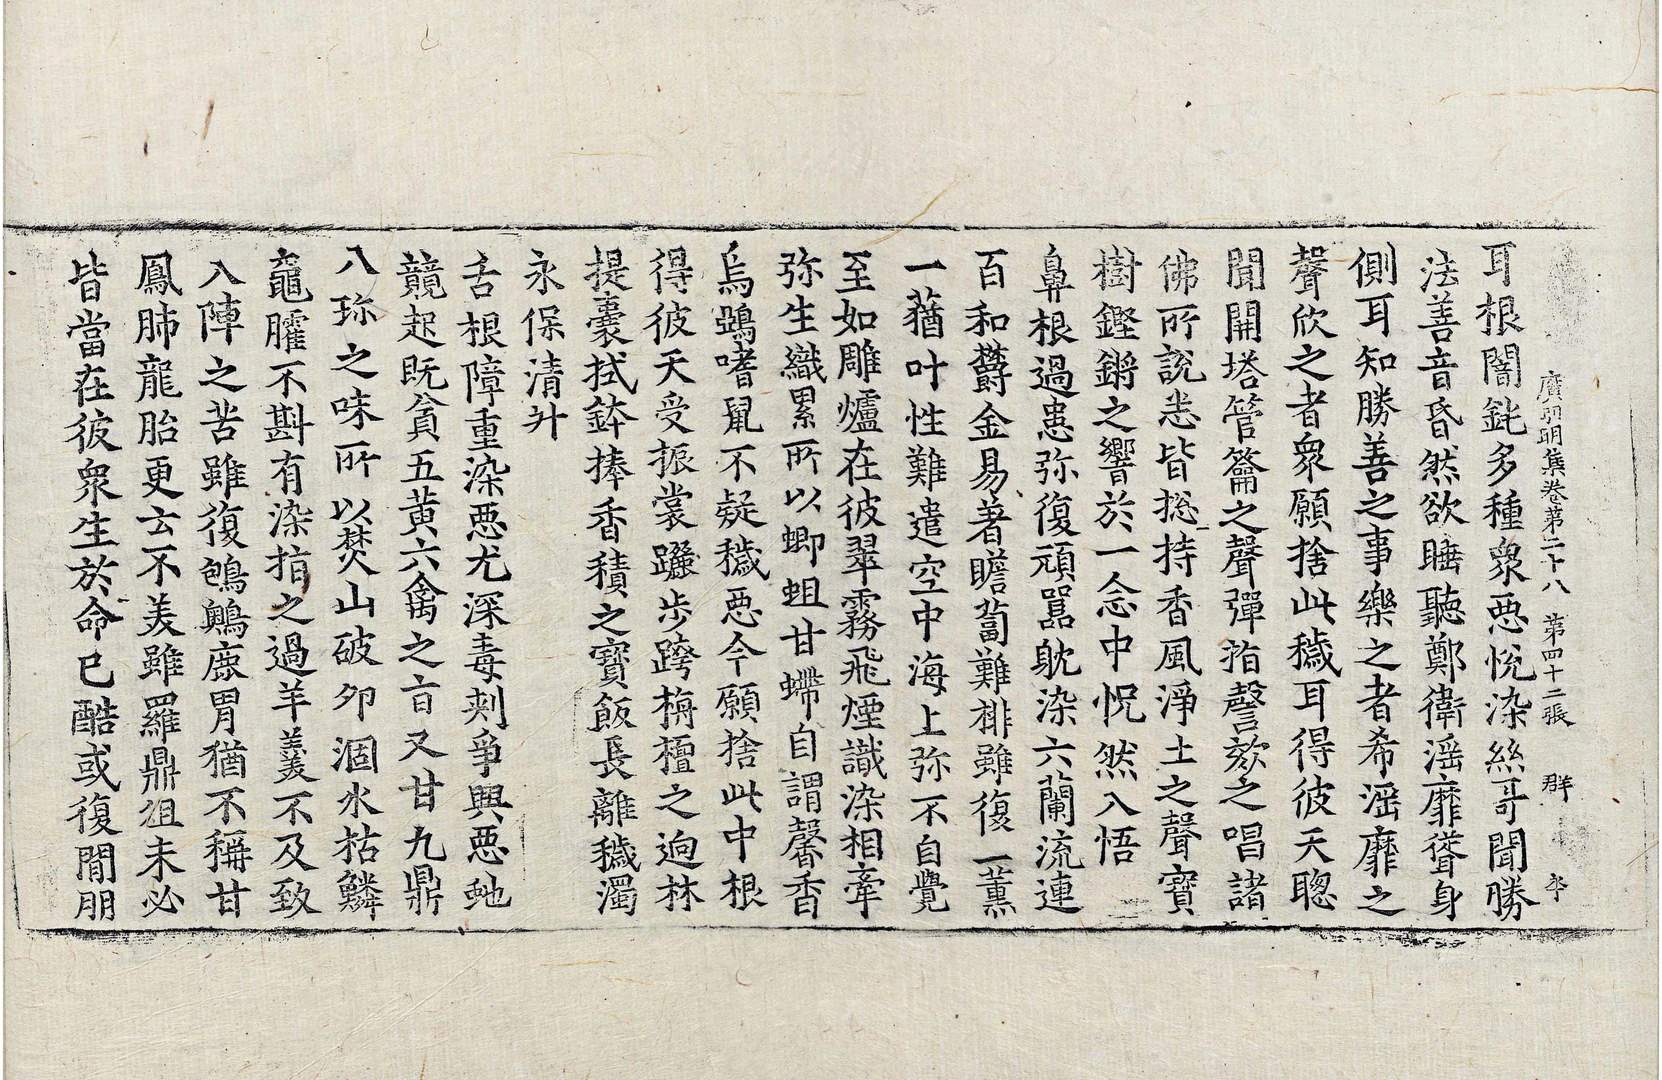 廣弘明集卷第二十八 第四十二張 群
耳根闇鈍多種衆惡悅染絲哥聞勝
法善音昏然欲睡聽鄭衛滛靡聳身
側耳知勝善之事樂之者希滛靡之
聲欣之者衆願捨此穢耳得彼天聦
聞開塔管籥之聲彈指謦欬之唱諸
佛所說悉皆揔持香風淨土之聲寶
樹鏗鏘之響於一念中怳然入悟
鼻根過患弥復頑嚚躭染六蘭流連
百和欝金易著瞻蔔難排雖復一薰
一蕕叶性難遣空中海上弥不自覺
至如雕爐在彼翠霧飛煙識染相牽
弥生織累所以螂蛆甘螮自謂馨香
烏鵄嗜䑕不疑穢惡今願捨此中根
得彼天受振裳躧步跨栴檀之逈林
提囊拭鉢捧香積之寶飯長離穢濁
永保清升
舌根障重染惡尤深毒刺爭興惡虵
競起既貪五黄六禽之旨又甘九鼎
八珎之味所以焚山破卵涸水枯鱗
黿臛不斟有染指之過羊羹不及致
入陣之苦雖復鴝鵒鹿胃猶不稱甘
鳳肺龍胎更云不美雖羅鼎俎未必
皆當在彼衆生於命已酷或復閒朋